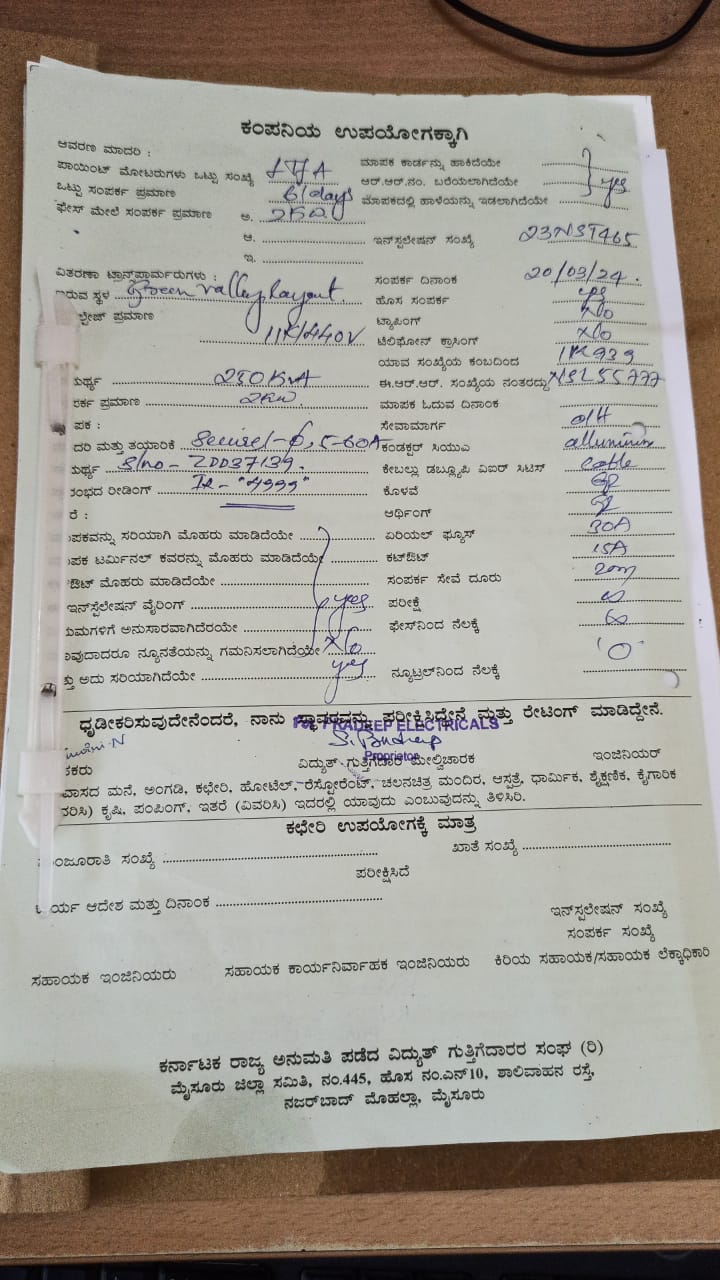 ಕಂಪನಿಯ ಉಪಯೋಗಕ್ಕಾಗಿ
ಆವರಣ ಮಾದರಿ :
ಪಾಯಿಂಟ್ ಮೋಟರುಗಳು ಒಟ್ಟು ಸಂಖ್ಯೆ
ಮಾಪಕ ಕಾರ್ಡನ್ನು ಹಾಕಿದೆಯೇ
ಒಟ್ಟು ಸಂಪರ್ಕ ಪ್ರಮಾಣ 6/days
ಆರ್.ಆರ್.ನಂ. ಬರೆಯಲಾಗಿದೆಯೇ yes
ಫೇಸ್ ಮೇಲೆ ಸಂಪರ್ಕ ಪ್ರಮಾಣ ಅ. 2KW
ಮಾಪಕದಲ್ಲಿ ಹಾಳೆಯನ್ನು ಇಡಲಾಗಿದೆಯೇ
ಆ.
ಇನ್‌ಸ್ಪಲೇಷನ್ ಸಂಖ್ಯೆ 23NST465
ಇ.
ವಿತರಣಾ ಟ್ರಾನ್ಸ್‌ಫಾರ್ಮರುಗಳು :
ಸಂಪರ್ಕ ದಿನಾಂಕ 20/03/24.
ಇರುವ ಸ್ಥಳ Green valley Layout.
ಹೊಸ ಸಂಪರ್ಕ yes
ಲ್ಟೇಜ್ ಪ್ರಮಾಣ 11K/440V
ಟ್ಯಾಪಿಂಗ್ No
ಟೆಲಿಫೋನ್ ಕ್ರಾಸಿಂಗ್ No
ಯಾವ ಸಂಖ್ಯೆಯ ಕಂಬದಿಂದ
ಮರ್ಥ್ಯ 250KVA
ಈ.ಆರ್.ಆರ್. ಸಂಖ್ಯೆಯ ನಂತರದ್ದು NSL55777
ರ್ಕ ಪ್ರಮಾಣ 2KW
ಮಾಪಕ ಓದುವ ದಿನಾಂಕ
ಪಕ :
ಸೇವಾಮಾರ್ಗ o/H
ದರಿ ಮತ್ತು ತಯಾರಿಕೆ Secure 5-60A
ಕಂಡಕ್ಟರ್ ಸಿಯುಎ alluminium
ಮರ್ಥ್ಯ S/no - ZDD37139.
ಕೇಬಲ್ಲು ಡಬ್ಲ್ಯೂಪಿ ವಿಐರ್ ಸಿಟಿಸ್ cable
ಂಭದ ರೀಡಿಂಗ್ IR - "4999"
ಕೊಳವೆ GP
ರೆ :
ಅರ್ಥಿಂಗ್
ಾಪಕವನ್ನು ಸರಿಯಾಗಿ ಮೊಹರು ಮಾಡಿದೆಯೇ
ಏರಿಯಲ್ ಫ್ಯೂಸ್ 30A
ಾಪಕ ಟರ್ಮಿನಲ್ ಕವರನ್ನು ಮೊಹರು ಮಾಡಿದೆಯೇ
ಕಟ್‌ಔಟ್ 15A
ಔಟ್ ಮೊಹರು ಮಾಡಿದೆಯೇ
ಸಂಪರ್ಕ ಸೇವೆ ದೂರು 20m
ಇನ್‌ಸ್ಪೆಲೇಷನ್ ವೈರಿಂಗ್ yes
ಪರೀಕ್ಷೆ
ಯಮಗಳಿಗೆ ಅನುಸಾರವಾಗಿದೆರಯೇ
ಫೇಸ್‌ನಿಂದ ನೆಲಕ್ಕೆ
ಾವುದಾದರೂ ನ್ಯೂನತೆಯನ್ನು ಗಮನಿಸಲಾಗಿದೆಯೇ No
ತ್ತು ಅದು ಸರಿಯಾಗಿದೆಯೇ yes
ನ್ಯೂಟ್ರಲ್‌ನಿಂದ ನೆಲಕ್ಕೆ 'O'
ಧೃಡೀಕರಿಸುವುದೇನೆಂದರೆ, ನಾನು ಸ್ಥಾವರವನ್ನು ಪರೀಕ್ಷಿಸಿದ್ದೇನೆ ಮತ್ತು ರೇಟಿಂಗ್ ಮಾಡಿದ್ದೇನೆ.
PRADEEP ELECTRICALS
Proprietor
ಕರು
ವಿದ್ಯುತ್ ಗುತ್ತಿಗೆದಾರ ಮೇಲ್ವಿಚಾರಕ
ಇಂಜಿನಿಯರ್
ವಾಸದ ಮನೆ, ಅಂಗಡಿ, ಕಛೇರಿ, ಹೋಟೆಲ್, ರೆಸ್ಟೋರೆಂಟ್, ಚಲನಚಿತ್ರ ಮಂದಿರ, ಆಸ್ಪತ್ರೆ, ಧಾರ್ಮಿಕ, ಶೈಕ್ಷಣಿಕ, ಕೈಗಾರಿಕ
ವರಿಸಿ) ಕೃಷಿ, ಪಂಪಿಂಗ್, ಇತರೆ (ವಿವರಿಸಿ) ಇದರಲ್ಲಿ ಯಾವುದು ಎಂಬುವುದನ್ನು ತಿಳಿಸಿರಿ.
ಕಛೇರಿ ಉಪಯೋಗಕ್ಕೆ ಮಾತ್ರ
ಂಜೂರಾತಿ ಸಂಖ್ಯೆ
ಖಾತೆ ಸಂಖ್ಯೆ
ಪರೀಕ್ಷಿಸಿದೆ
ಾರ್ಯ ಆದೇಶ ಮತ್ತು ದಿನಾಂಕ
ಇನ್‌ಸ್ಪಲೇಷನ್ ಸಂಖ್ಯೆ
ಸಂಪರ್ಕ ಸಂಖ್ಯೆ
ಸಹಾಯಕ ಇಂಜಿನಿಯರು
ಸಹಾಯಕ ಕಾರ್ಯನಿರ್ವಾಹಕ ಇಂಜಿನಿಯರು
ಕಿರಿಯ ಸಹಾಯಕ/ಸಹಾಯಕ ಲೆಕ್ಕಾಧಿಕಾರಿ
ಕರ್ನಾಟಕ ರಾಜ್ಯ ಅನುಮತಿ ಪಡೆದ ವಿದ್ಯುತ್ ಗುತ್ತಿಗೆದಾರರ ಸಂಘ (ರಿ)
ಮೈಸೂರು ಜಿಲ್ಲಾ ಸಮಿತಿ, ನಂ.445, ಹೊಸ ನಂ.ಎನ್10, ಶಾಲಿವಾಹನ ರಸ್ತೆ,
ನಜರ್‌ಬಾದ್ ಮೊಹಲ್ಲಾ, ಮೈಸೂರು